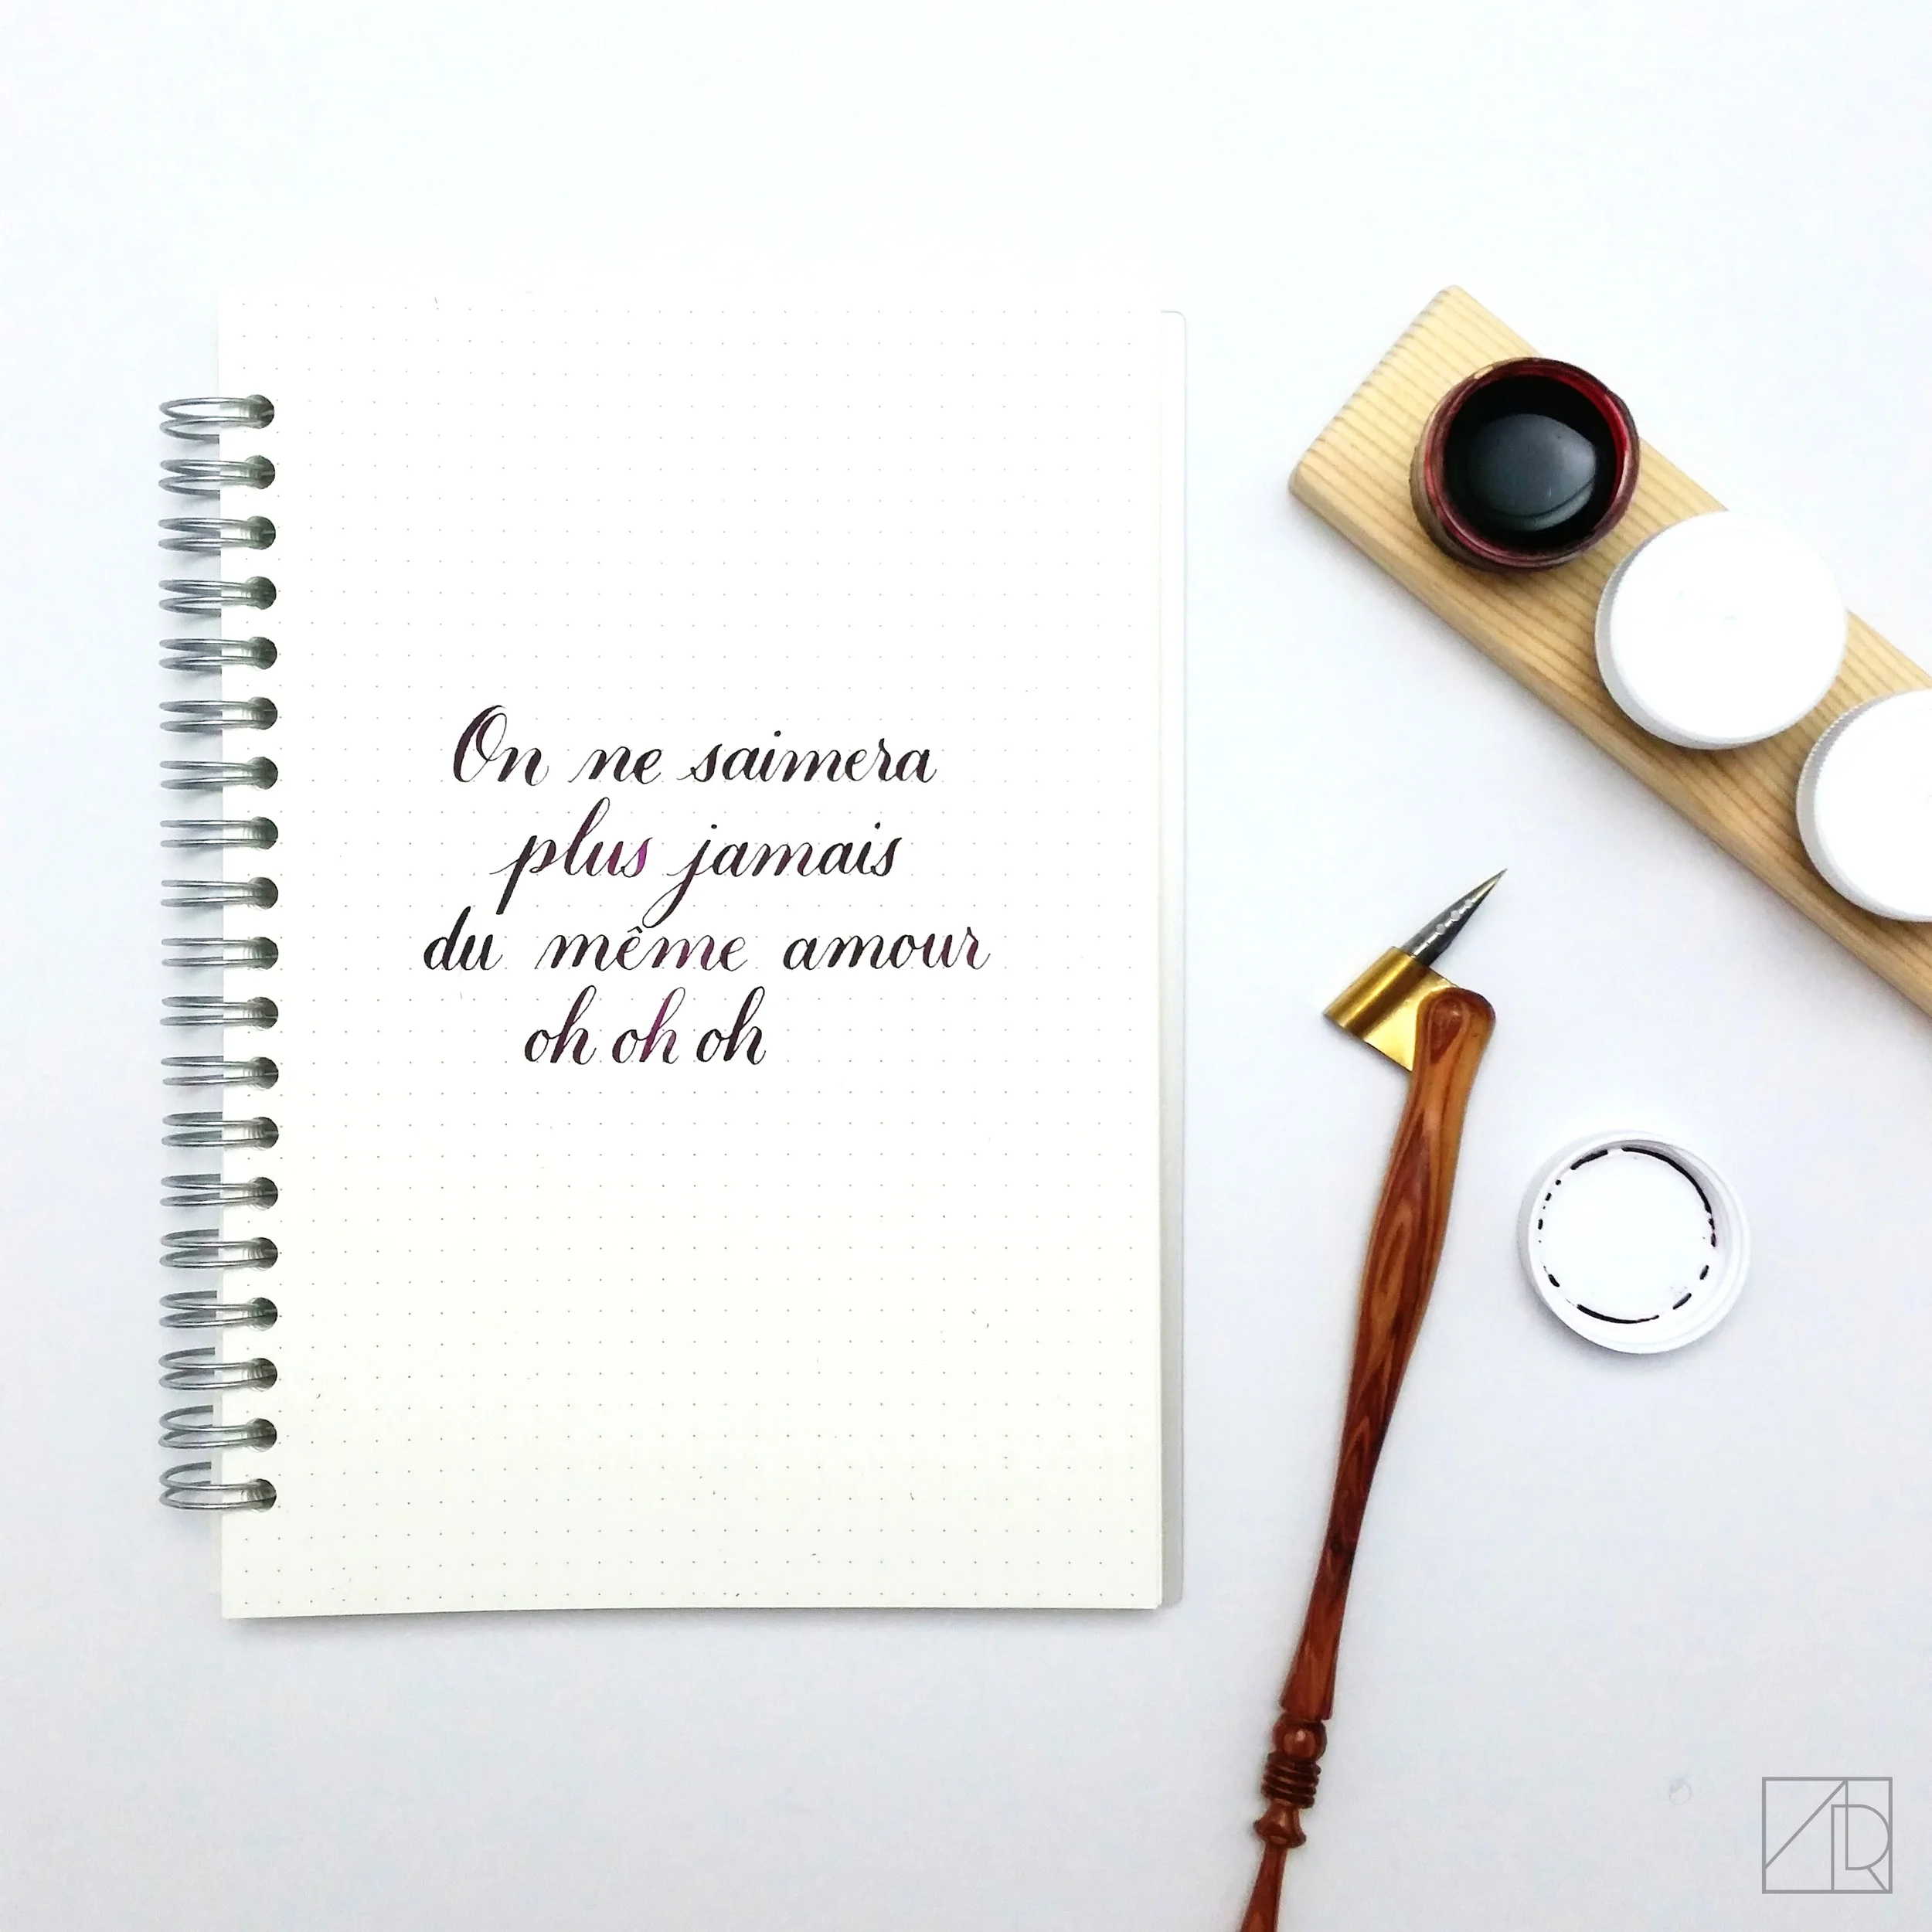 On ne saimera
plus jamais
du même amour
oh oh oh